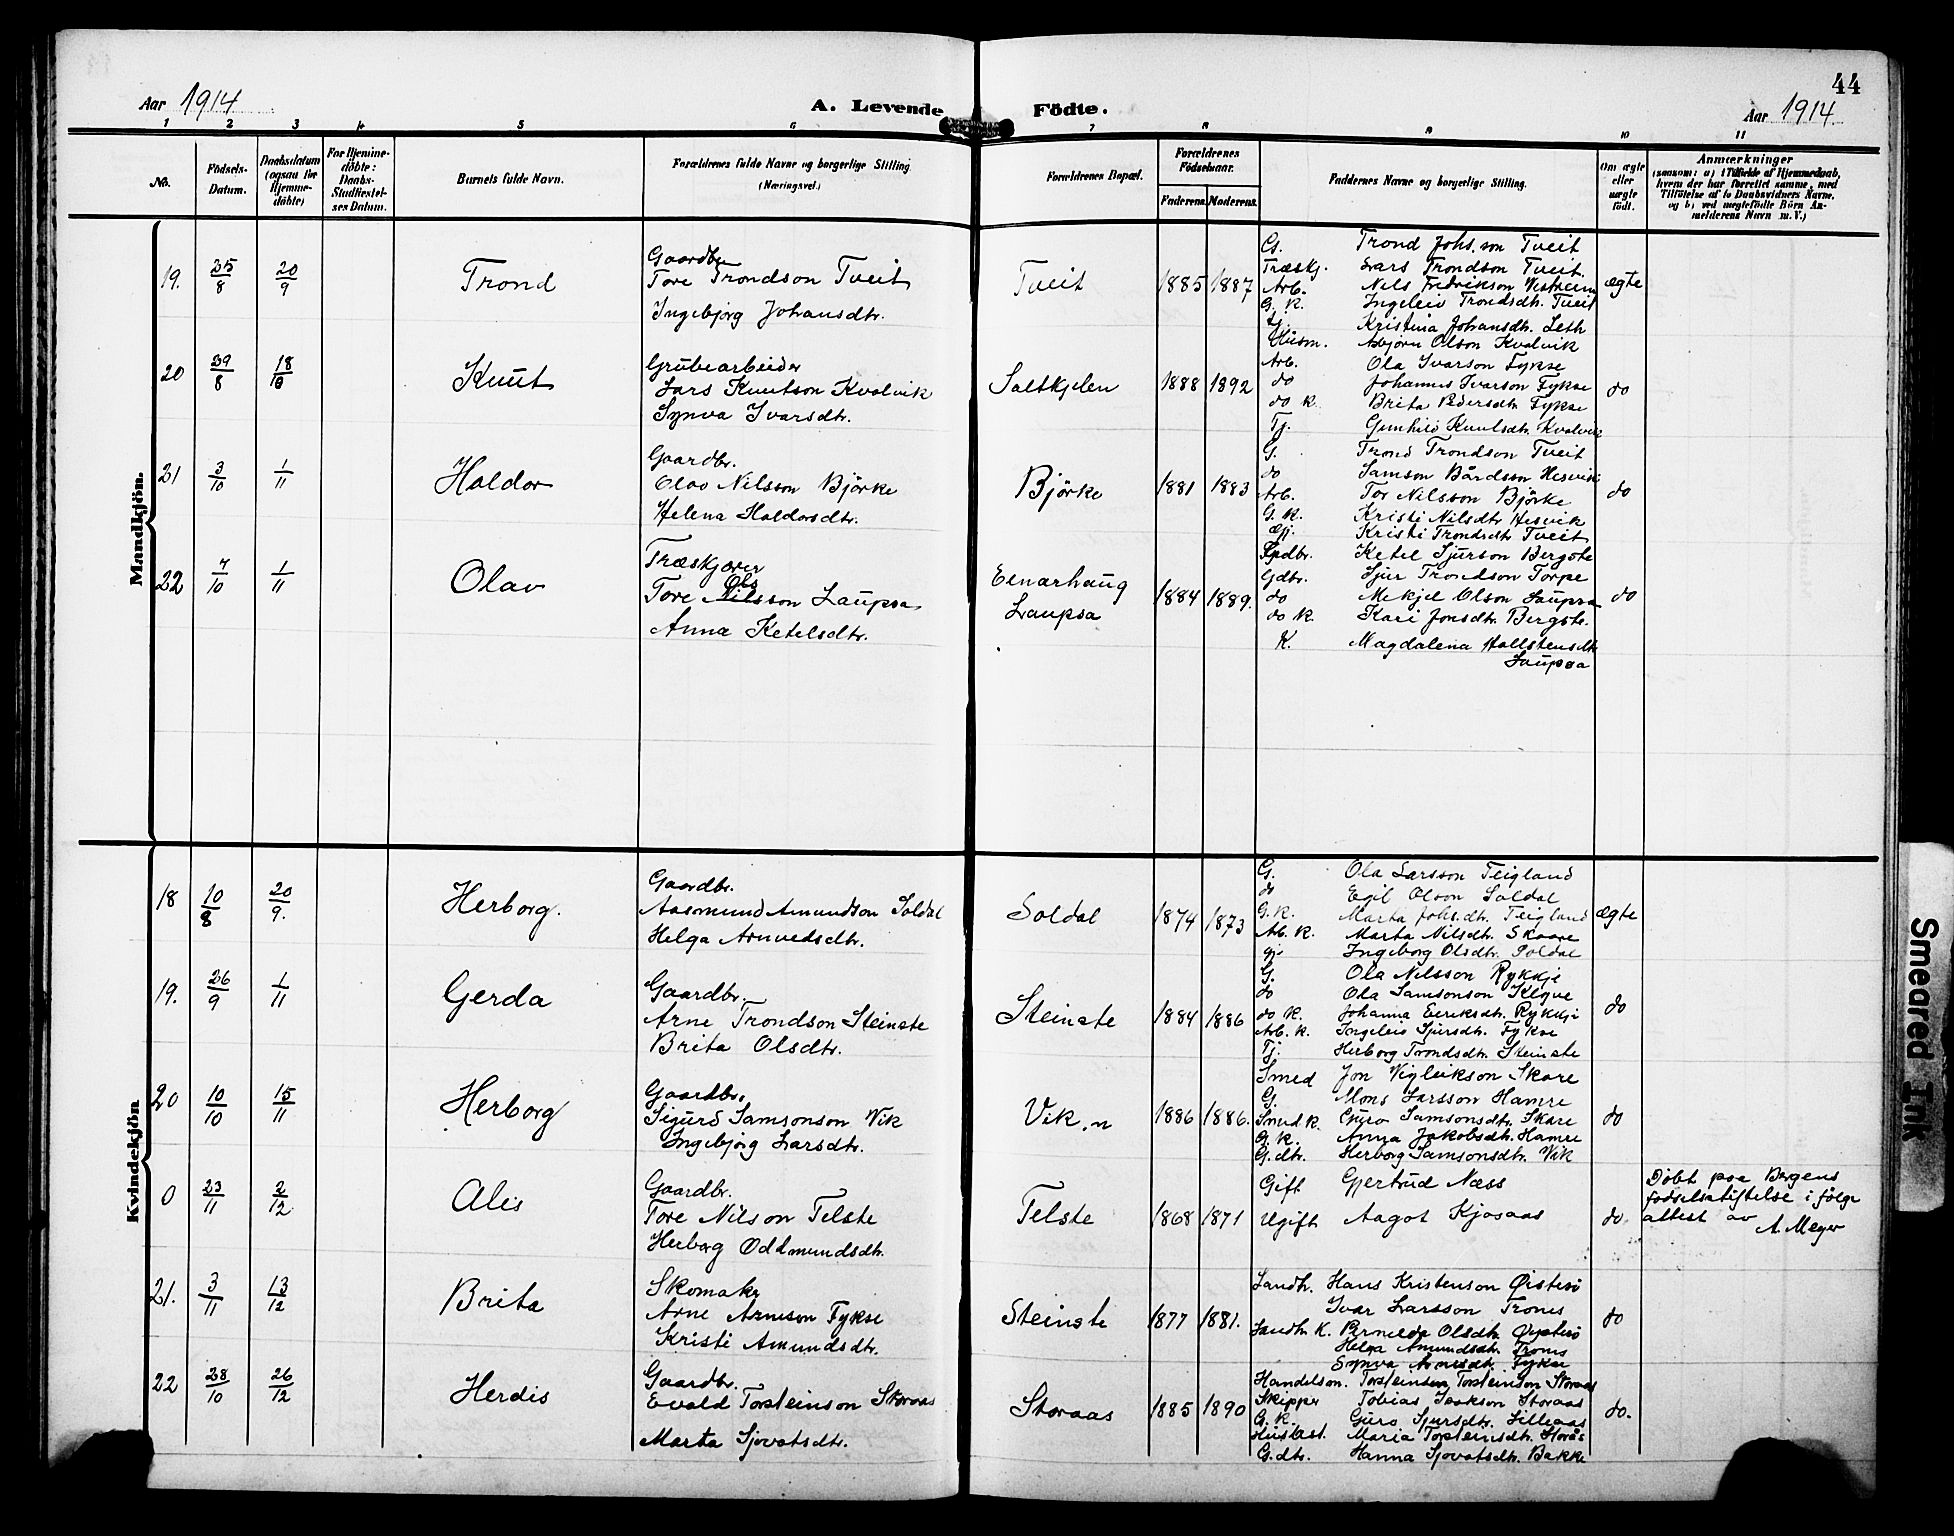 44
Aar 1914
A. Levende Födte.
Aar 1914.
1 2 3 4 5 6 7 8 9 10 11
No.
Födsels-Datum.
Daabsdatum (ogsaa for Hjemme-döbte)
For Hjemme-döbte: Daabs-Stadfæstel-ses Datum.
Barnets fulde Navn.
Forældrenes fulde Navne og borgerlige Stilling. (Næringsvei.)
Forældrenes Bopæl.
Forældrenes Födselsaar.
Faderens. Moderens.
Faddernes Navne og borgerlige Stilling.
Om ægte eller uægte födt.
Anmærkninger
(saasom: a) i Tilfælde af Hjemmedaab,
hvem der har forrettet samme, med
Tilföielse af to Daabsvidners Navne,
og b) ved uægtefödte Börn An-
melderens Navn m. V.)
Mandkjön.
19. 25/8 20/9 Trond
Gaardbr.
Tore Trondson Tveit
Ingebjørg Johansdtr.
Tveit 1885 1887 ægte
G. Trond Johs.son Tveit
Træskj. Lars Trondson Tveit.
Arb. Nils Fredrikson
G. K. Ingeleiv Trondsdtr. Tveit
Tj. Kristina Johansdtr. Leth
20 29/8 18/10 Knut
Grubearbeider
Lars Knutson Kvalvik
Synva Ivarsdtr.
Saltkjelen 1888 1892 do
Husm. Asbjørn Olson Kvalvik
Arb. Ola Ivarson Fykse
do Johannes Ivarson Fykse
do K. Brita Pedersdtr. Fykse
Tj. Gunhild Knutsdtr. Kvalvik
21 3/10 1/11 Haldor
Gaardbr.
Olav Nilsson Björke
Helena Haldorsdtr.
Björke 1881 1883 do
G. Trond Trondson Tveit
do Samson Bårdsson Hesvik
Arb. Tor Nilsson Björke
G. K. Kristi Nilsdtr. Hesvik
Gj. Kristi Trondsdtr. Tveit
22 7/10 1/11 Olav
Træskjærer
Ols
Tore Nilsson Laupsa
Anna Ketelsdtr.
Einarhaug
Laupsa
1884 1889. do
Ketel Sjurson Bergste
Gdbr. Sjur Trondson Torpe
do Mikjel Olson Laupsa
do K. Kari Jonsdtr. Bergste.
K. Magdalena Hallstensdtr.
Laupsa
Kvindekjön
18 10/8 20/9. Herborg.
Gaardbr.
Aasmund Amundson Soldal
Helga Arnvedsdtr.
Soldal 1874 1873 ægte
G. Ola Larsson Teigland
do Egil Olson Soldal
G. K. Marta Johs.dtr. Teigland
Arb. K. Marta Nilsdtr. Skaare
Gj. Ingeborg Olsdtr. Soldal
19. 26/9 1/11 Gerda
Gaardbr.
Arne Trondson Steinste
Brita Olsdtr.
Steinste 1884 1886 do
G. Ola Nilsson Rykkje
do Ola Samsonson Klyve
do K. Johanna Eeriksdtr. Rykkje
Arb. K. Ingeleiv Sjursdtr. Fykse
Tj. Herborg Trondsdtr. Steinste
20 10/10 15/11 Herborg
Gaardbr.
Sigurd Samsonson Vik
Ingebjørg Larsdtr.
Vik.n 1886 1886. do
Smed Jon Vigleikson Skare
G. Mons Larsson Hamre
Smed K. Guro Samsonsdtr. Skare
G. K. Anna Jakobsdtr. Hamre
G. dtr. Herborg Samsonsdtr. Vik
0 23/11 2/12 Alis
Gaardbr.
Tore Nilson Telste
Herborg Oddmundsdtr.
Telste 1868 1871 do.
Gift Gjertrud Næss
Ugift Aagot Kjosaas
Döbt paa Bergens
fødselsstiftelse i følge
attest av A. Meyer
21. 3/11 13/12 Brita
Skomaker
Arne Arneson Fykse
Kristi Amundsdtr.
Steinste 1877 1881. do
Landh. Hans Kristenson Øistesø
Ivar Larsson Tronis
Landh. K. Pernelda Olsdtr. Øystesø
Helga Amundsdtr. Tronis
Synva Arnesdtr. Fykse
22 28/10 26/12 Herdis
Gaardbr.
Evald Torsteinson Storaas
Marta Sjovatsdtr.
Storaas 1885 1890 do.
Handelsm. Torsteinson Storaas
Skipper Tobias Isakson Storaas
G. K. Guro Sjursdtr. Lilleaas
Maria Torsteinsdtr. Storås
G. dtr. Hanna Sjovatsdtr. Bakke
Smeared Ink